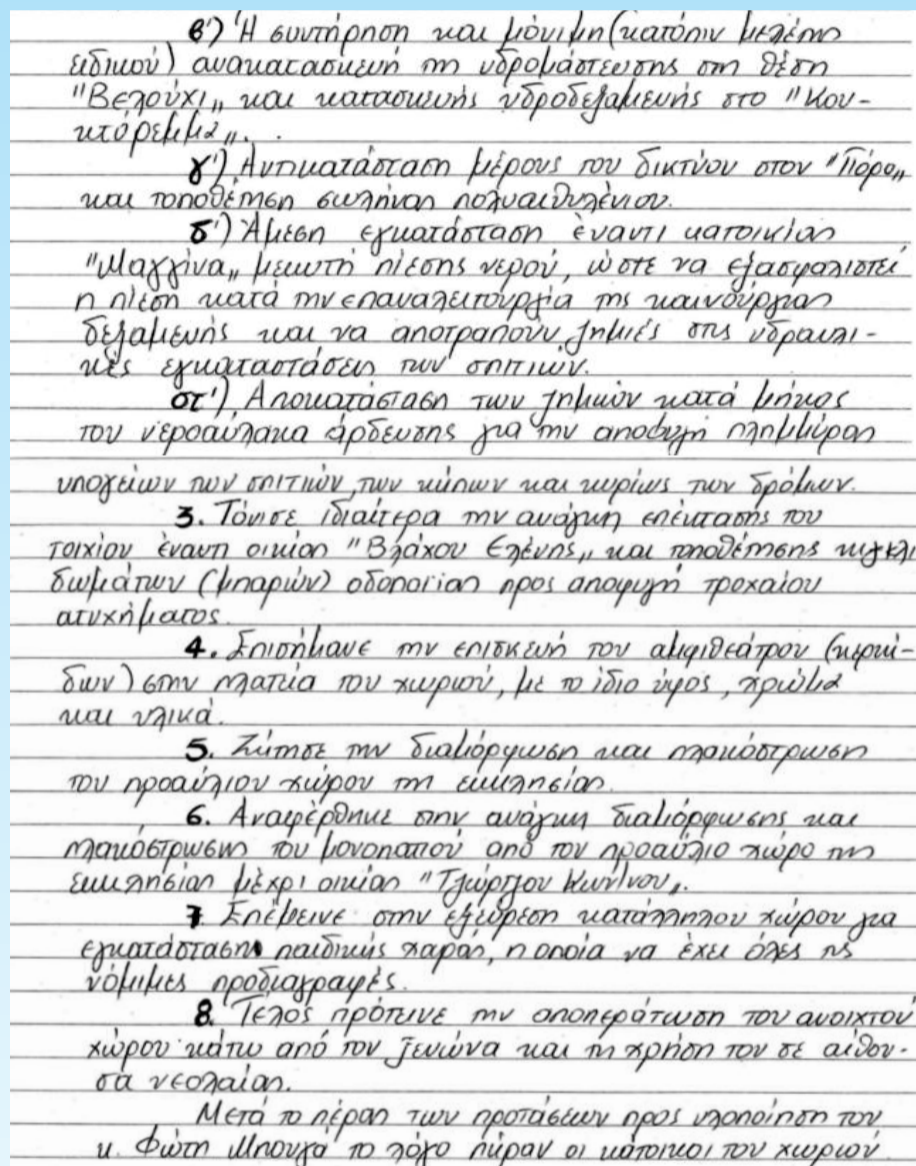 β') Ἡ συντήρηση και μόνιμη (κατόπιν μελέτης
ειδικού) ανακατασκευή της υδρομάστευσης στη θέση
"Βελούχι„ και κατασκευής υδροδεξαμενής στο "Κου-
κτόρεμμα„.
γ') Αντικατάσταση μέρους του δικτύου στον "Πόρο„
και τοποθέτηση σωλήνας πολυαιθυλένιου.
δ') Άμεση εγκατάσταση έναντι κατοικίας
"Μαγγίνα„ μειωτή πίεσης νερού, ώστε να εξασφαλιστεί
η πίεση κατά την επαναλειτουργία της καινούργιας
δεξαμενής και να αποτραπούν ζημιές στις υδραυλι-
κές εγκαταστάσεις των σπιτιών.
στ') Αποκατάσταση των ζημιών κατά μήκος
του νεροαύλακα άρδευσης για την αποφυγή πλημμύρας
υπογείων των σπιτιών, των κήπων και κυρίως των δρόμων.
3. Τόνισε ιδιαίτερα την ανάγκη επέκτασης του
τοιχίου έναντι οικίας "Βλάχου Ελένης„ και τοποθέτησης κιγκλι
δωμάτων (μπαρών) οδοποιίας προς αποφυγή τροχαίου
ατυχήματος.
4. Επισήμανε την επισκευή του αμφιθεάτρου (κερκί-
δων) στην πλατεία του χωριού, με το ίδιο ύφος, χρώμα
και υλικά.
5. Ζήτησε την διαμόρφωση και πλακόστρωση
του προαύλιου χώρου της εκκλησίας.
6. Αναφέρθηκε στην ανάγκη διαμόρφωσης και
πλακόστρωσης του μονοπατιού από τον προαύλιο χώρο της
εκκλησίας μέχρι οικίας "Γιώργου Κων/νου„.
7. Επέμεινε στην εξεύρεση κατάλληλου χώρου για
εγκατάσταση παιδικής χαράς, η οποία να έχει όλες τις
νόμιμες προδιαγραφές.
8. Τέλος πρότεινε την αποπεράτωση του ανοιχτού
χώρου κάτω από τον ξενώνα και τη χρήση του σε αίθου-
σα νεολαίας.
Μετά το πέρας των προτάσεων προς υλοποίηση του
κ. Φώτη Μπουγά το λόγο πήραν οι κάτοικοι του χωριού